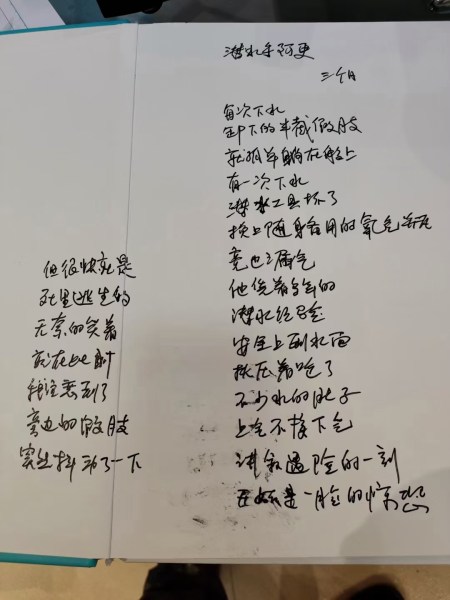 潜水手阿更
三个
每次下水
卸下的半截假肢
就孤单躺在船上
有一次下水
潜水工具坏了
换上随身备用的氧气瓶
竟也漏气
他凭着多年的
潜水经验
安全上到水面
挤压着呛了
不少水的肚子
上气不接下气
讲和遇险的一刻
还是一脸的惊恐
但很快就是
死里逃生的
无奈的笑着
就在此时
我注意到了
旁边的假肢
突然抖动了一下